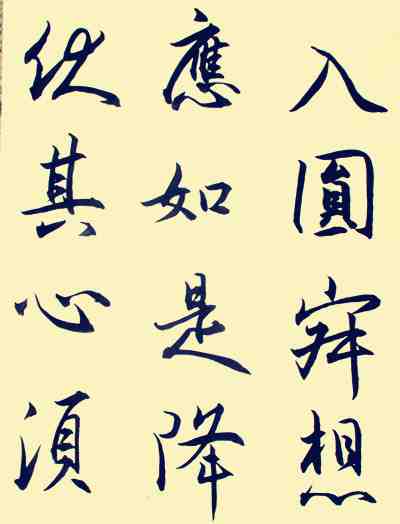 入圓寂想
應如是降
伏其心湏